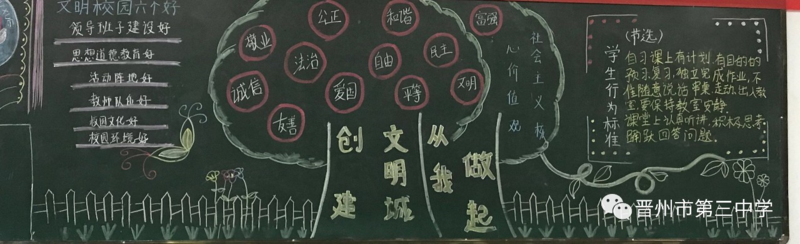 文明校园六个好
领导班子建设好
思想道德教育好
活动阵地好
教师队伍好
校园文化好
校园环境好
公正
和谐
富强
敬业
法治
自由
民主
诚信
爱国
平等
文明
友善
社会主义核
心价值观
创建
文明城
从我
做起
(节选)
学生行为标准
自习课上有计划有目的的
预习复习,独立完成作业,不
住随意说话串桌走动,出入教
室要保持教室安静
课堂上认真听讲,积极思考,
踊跃回答问题。
晋州市第三中学